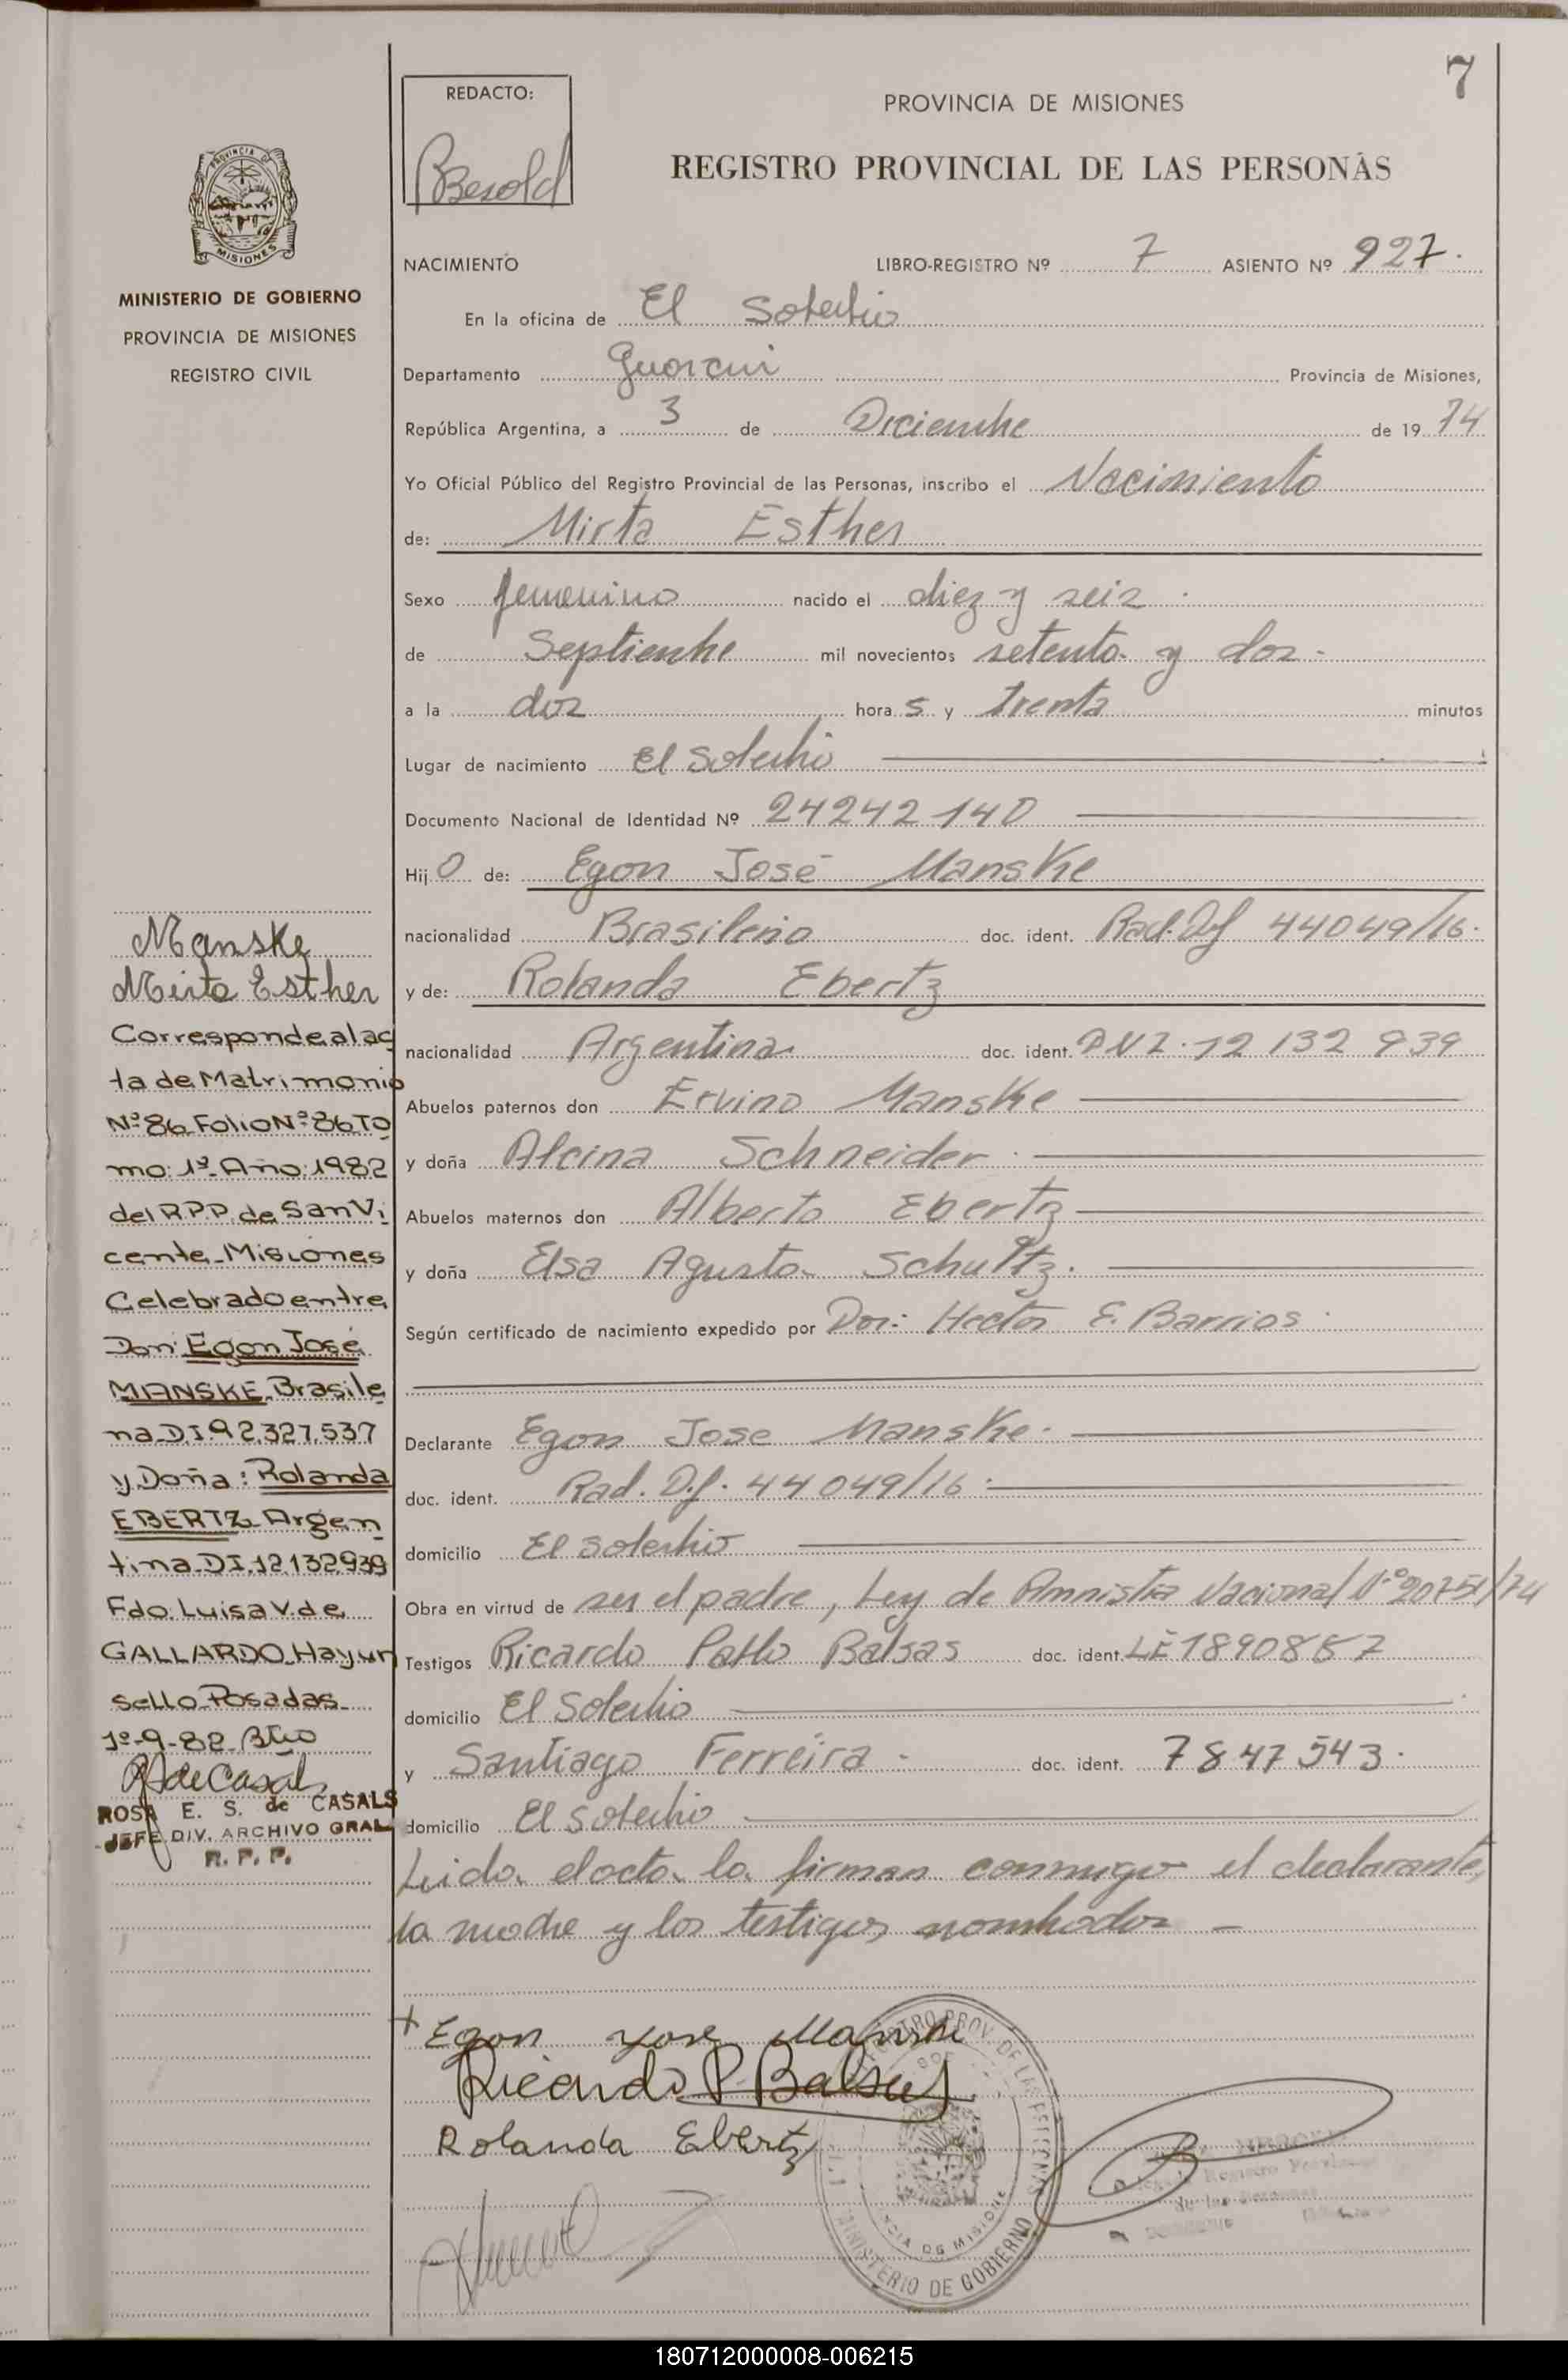 7
REDACTO:
Besold
PROVINCIA DE MISIONES
REGISTRO PROVINCIAL DE LAS PERSONAS
PROVINCIA
MISIONES
MINISTERIO DE GOBIERNO
PROVINCIA DE MISIONES
REGISTRO CIVIL
NACIMIENTO LIBRO-REGISTRO Nº 7 ASIENTO Nº 927.
En la oficina de El Soberbio
Departamento Guarani Provincia de Misiones,
República Argentina, a 3 de Diciembre de 19 74
Yo Oficial Público del Registro Provincial de las Personas, inscribo el Nacimiento
de: Mirta Esther
Sexo femenino nacido el diez y seis
de Septiembre mil novecientos setenta y dos
a la dos hora s y treinta minutos
Lugar de nacimiento El Soberbio
Documento Nacional de Identidad Nº 24242140
Hij O de: Egon José Manske
nacionalidad Brasileño doc. ident. Rad. Df 44049/16.
y de: Rolanda Ebertz
nacionalidad Argentina doc. ident. DNI. 12 132 939
Abuelos paternos don Ervino Manske
y doña Alcina Schneider
Abuelos maternos don Alberto Ebertz
y doña Elsa Agusta Schultz.
Según certificado de nacimiento expedido por Dor: Hector E. Barrios
Declarante Egon Jose Manske
doc. ident. Rad. D.f. 44 049/16
domicilio El Soberbio
Obra en virtud de ser el padre, Ley de Amnistia Nacional Nº 20751/74
Testigos Ricardo Pablo Balsas doc. ident. LE 1890857
domicilio El Soberbio
y Santiago Ferreira doc. ident. 7847543.
domicilio El Soberbio
Leida el acta la firman conmigo el declarante,
la madre y los testigos nombrados
Manske
Mirta Esther
Corresponde al ac
ta de Matrimonio
Nº 86 Folio Nº 86 To
mo: 1º Año: 1982
del R.P.P. de San Vi
cente-Misiones
Celebrado entre
Don: Egon José
MANSKE Brasile
na D.I. 92.327.537
y Doña: Rolanda
EBERTZ Argen
tina D.I. 12.132.939
Fdo. Luisa V. de
GALLARDO Hay un
sello Posadas
1º-9-82
R S de Casals
ROSA E. S. de CASALS
JEFE DIV. ARCHIVO GRAL
R. P. P.
+ Egon Jose Manske
Ricardo P Balsas
Rolanda Ebertz
REGISTRO PROV. DE LAS PERSONAS
PROVINCIA DE MISIONES
MINISTERIO DE GOBIERNO
180712000008-006215